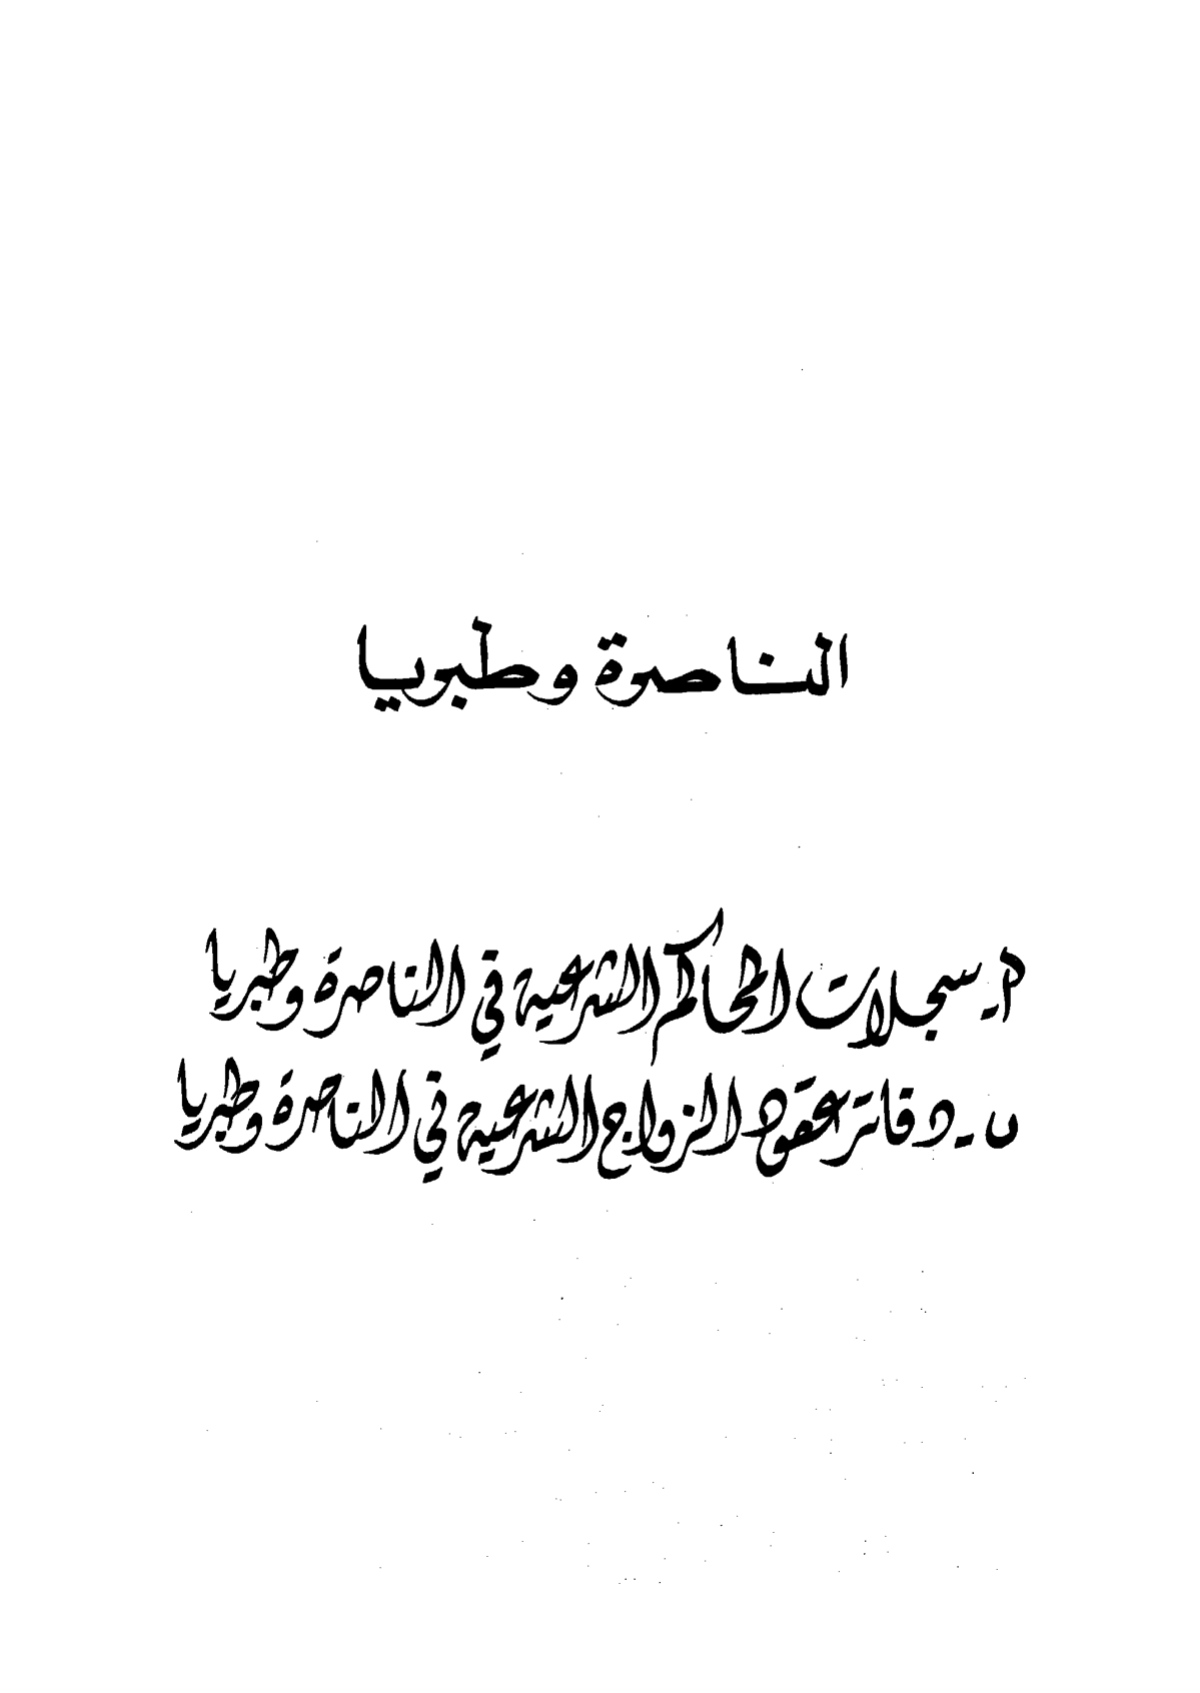 الناصرة وطبريا
م - سجلات المحاكم الشرعية في الناصرة وطبريا
ن - دفاتر عقود الزواج الشرعية في الناصرة وطبريا